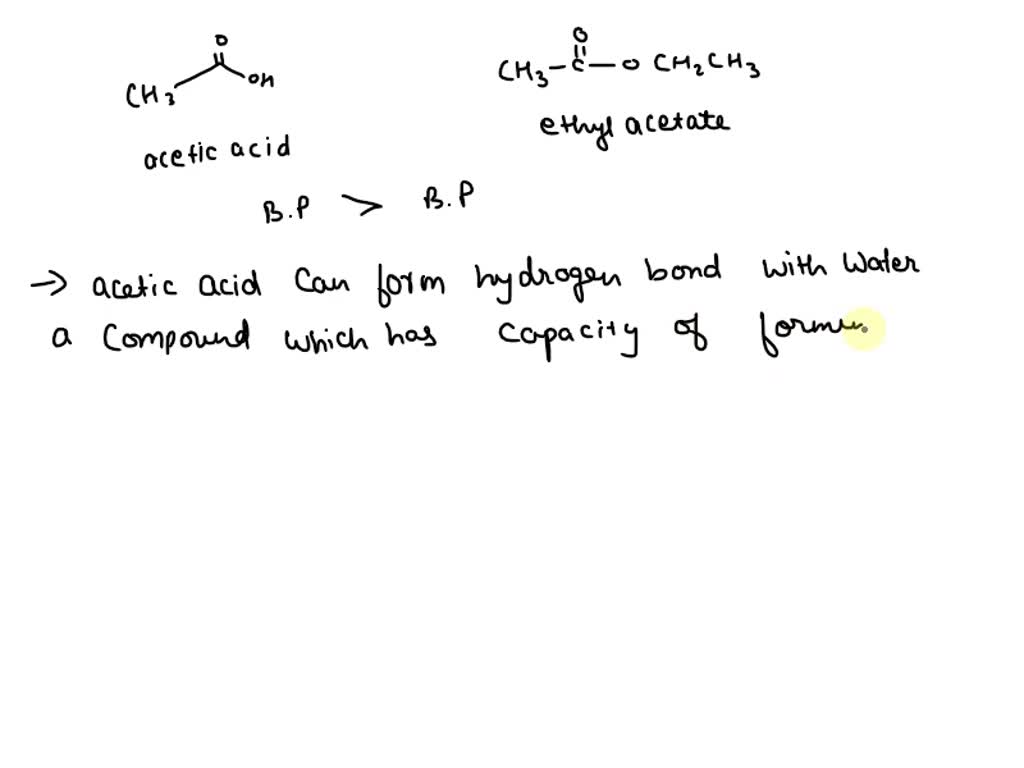 O
OH
CH3
acetic acid
O
CH3-C-O CH2CH3
ethyl acetate
B.P > B.P
→ acetic acid Can form hydrogen bond with Water
a Compound which has capacity of